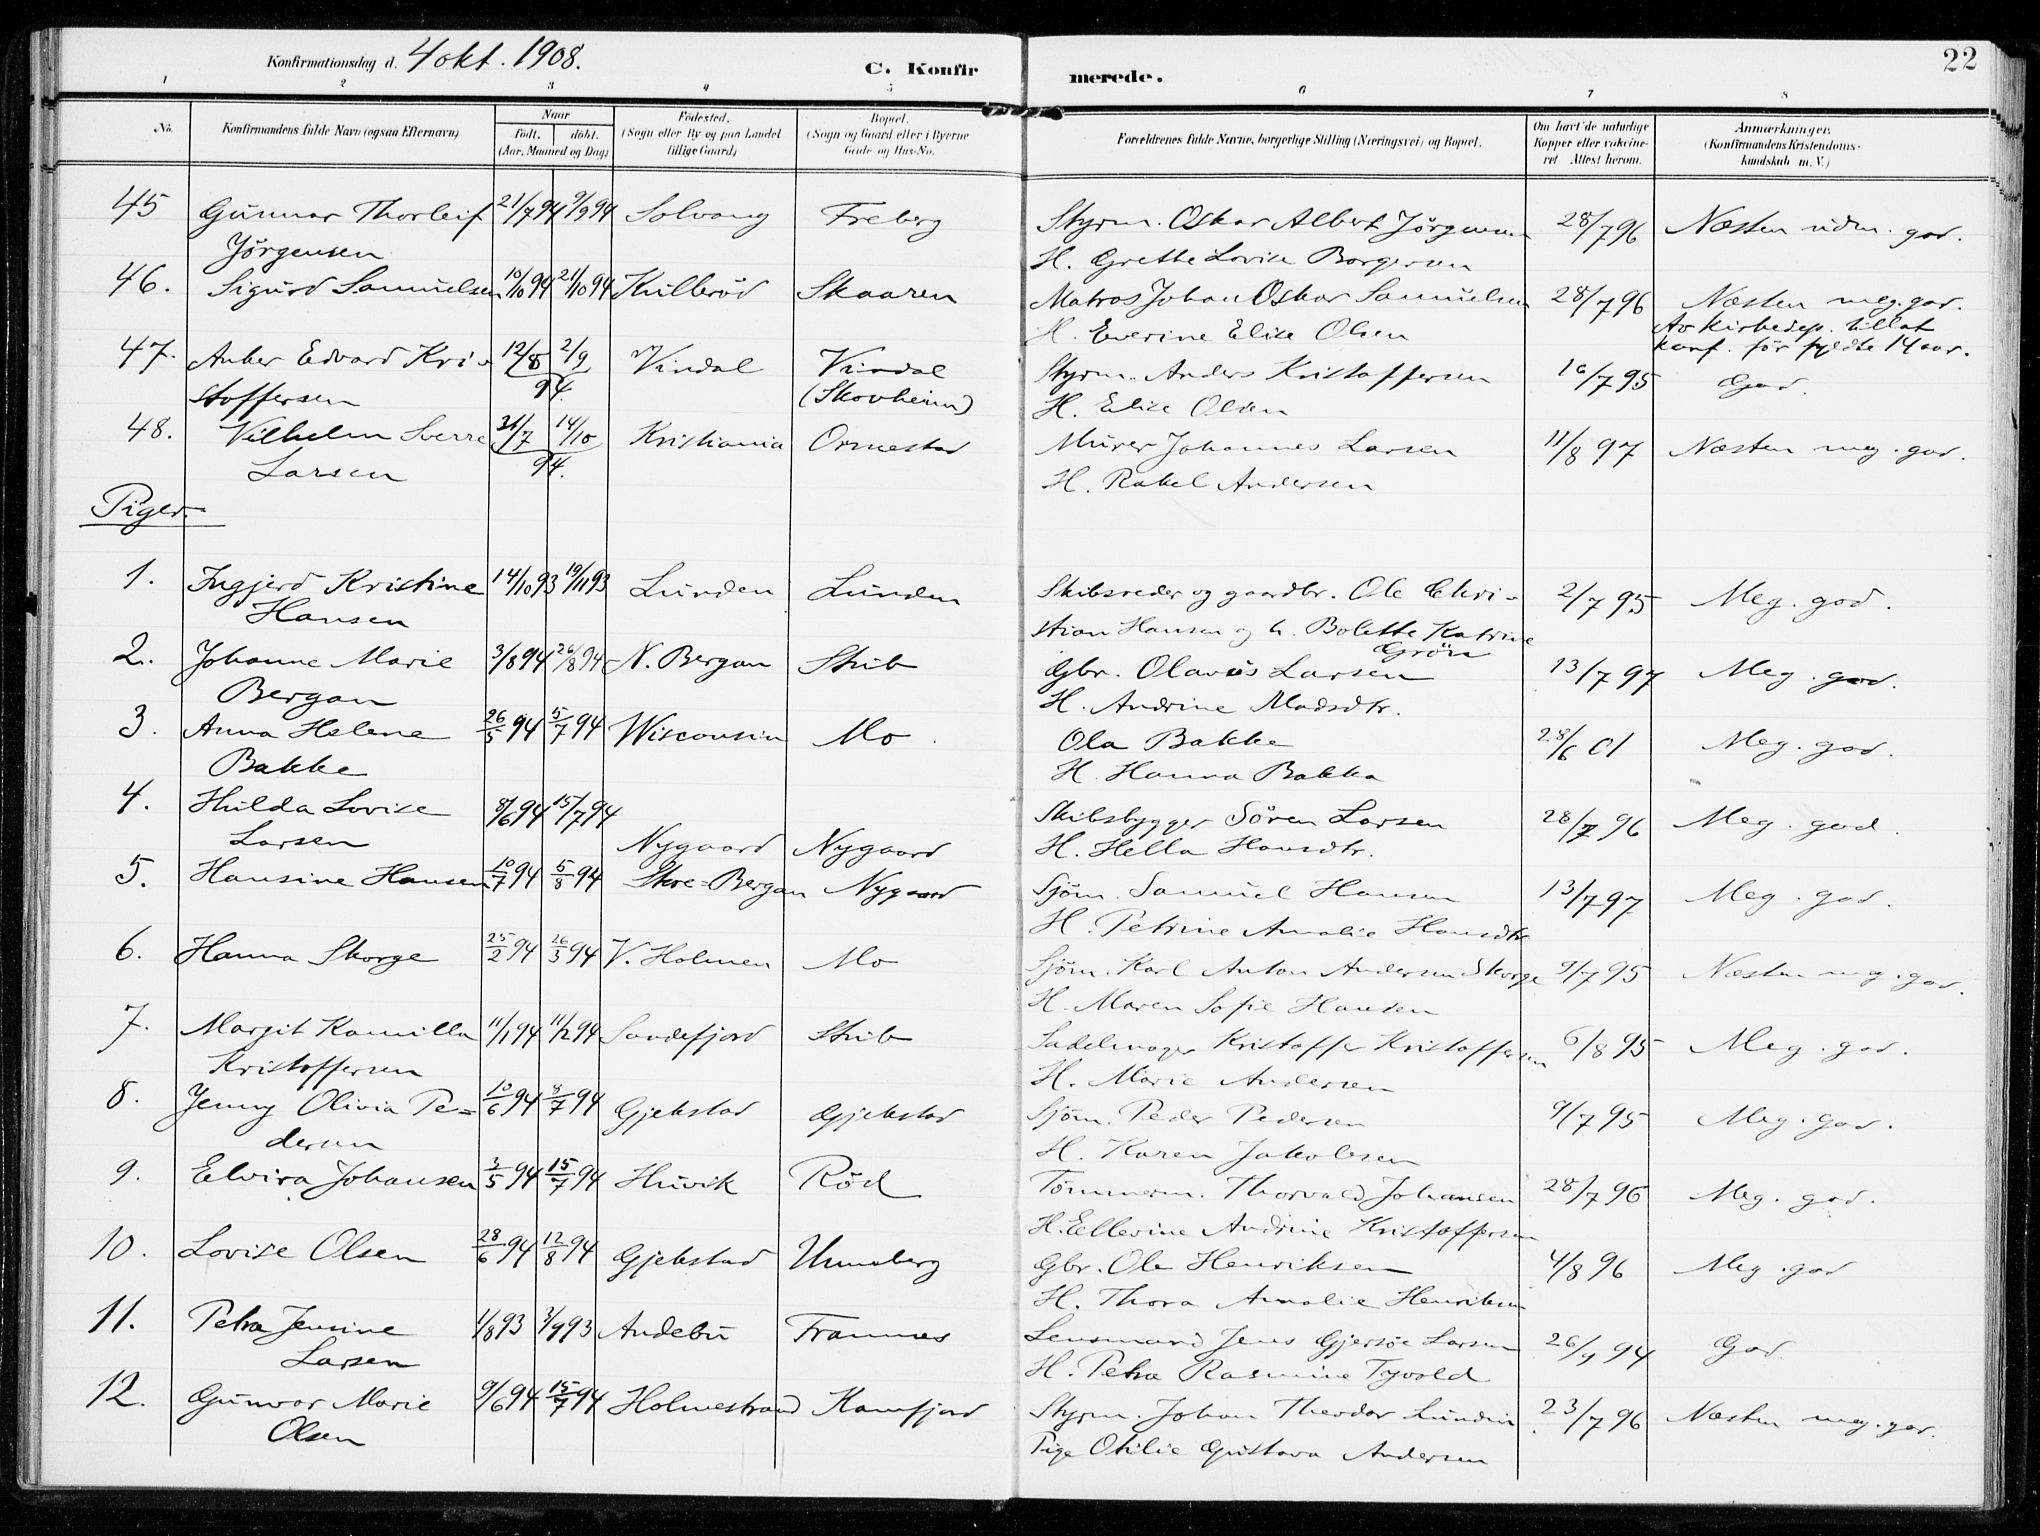 Konfirmationsdag d. 4 okt. 1908.
C. Konfirmerede.
22
1 2 3 4 5 6 7 8
No. | Konfirmandens fulde Navn (ogsaa Efternavn) | Naar født. døbt. (Aar, Maaned og Dag) | Fødested. (Sogn eller By og paa Landet tillige Gaard) | Bopæl. (Sogn og Gaard eller i Byerne Gade og Hus-No. | Forældrenes fulde Navne, borgerlige Stilling (Næringsvei) og Bopæl. | Om havt de naturlige Kopper eller vakcineret Attest herom. | Anmærkninger. (Konfirmandens Kristendomskundskab m. V.)
45 Gunnar Thorleif 21/7 94 9/9 94 Solvang Freberg Styrm. Oskar Albert Jørgensen 28/7 96 Næsten udm. god.
Jørgensen H. Grethe Lovise Borgersen
46. Sigurd Samuelsen 10/10 94 21/10 94 Kullerød Skaaren Matros Johan Oskar Samuelsen 28/7 96 Næsten meg. god.
H. Everine Elise Olsen Av Kirkedep. tillat
konf. før fyldte 14 aar.
47. Anker Edvard Kri- 12/8 2/9 Vindal Vindal Styrm. Anders Kristoffersen 16/7 95 God.
stoffersen 94 (Skovheim) H. Elise Olsen
48. Vilhelm Sverre 31/7 14/10 Kristiania Ormestad Murer Johannes Larsen 11/8 97 Næsten meg. god.
Larsen 94. H. Rakel Andersen
Piger.
1. Ingjerd Kristine 14/10 93 19/11 93 Lunden Lunden Skibsreder og gaardbr. Ole Chri- 2/7 95 Meg. god.
Hansen stian Hansen og h. Bolette Katrine
Grøn
2. Johanne Marie 3/8 94 26/8 94 N. Bergan Stub Gbr. Olavus Larsen 13/7 97 Meg. god.
Bergan H. Andrine Madsdtr.
3. Anna Helene 26/5 94 5/7 94 Wisconsin Mo Ola Bakke 28/6 01 Meg. god.
Bakke H. Hanna Bakka
4. Hulda Lovise 8/6 94 15/7 94 Skibsbygger Søren Larsen 28/7 96 Meg. god.
Larsen Nygaard Nygaard H. Hella Hansdtr.
5. Hansine Hansen 10/7 94 5/8 94 Skre-Bergan Nygaard Sjøm. Samuel Hansen 13/7 97 Meg. god.
H. Petrine Amalie Hansdtr.
6. Hanna Skorge 25/2 94 26/3 94 V. Holmen Mo Sjøm. Karl Anton Andersen Skorge 9/7 95 Næsten meg. god.
H. Maren Sofie Hansen
7. Margit Kamilla 11/1 94 11/2 94 Sandefjord Stub Sadelmager Kristoffer Kristoffersen 6/8 95 Meg. god.
Kristoffersen H. Marie Andersen
8. Jenny Olivia Pe- 10/6 94 8/7 94 Gjekstad Gjekstad Sjøm. Peder Pedersen 9/7 95 Meg. god.
dersen H. Karen Jakobsen
9. Elvira Johansen 3/5 94 15/7 94 Huvik Rød Tømmerm. Thorvald Johansen 28/7 96 Meg. god.
H. Ellevine Andrine Kristoffersen
10. Lovise Olsen 28/6 94 12/8 94 Gjekstad Unneberg Gbr. Ole Henriksen 4/8 96 Meg. god
H. Thora Amalie Henriksen
11. Petra Jensine 1/8 93 3/9 93 Andebu Framnes Lensmand Jens Gjersøe Larsen 26/9 94 God
Larsen H. Petra Rasmine Tyvold
12. Gunvor Marie 9/6 94 15/7 94 Holmestrand Kamfjord Styrm. Johan Theodor Lundin 23/7 96 Næsten meg. god.
Olsen Pige Otilie Gustava Andersen